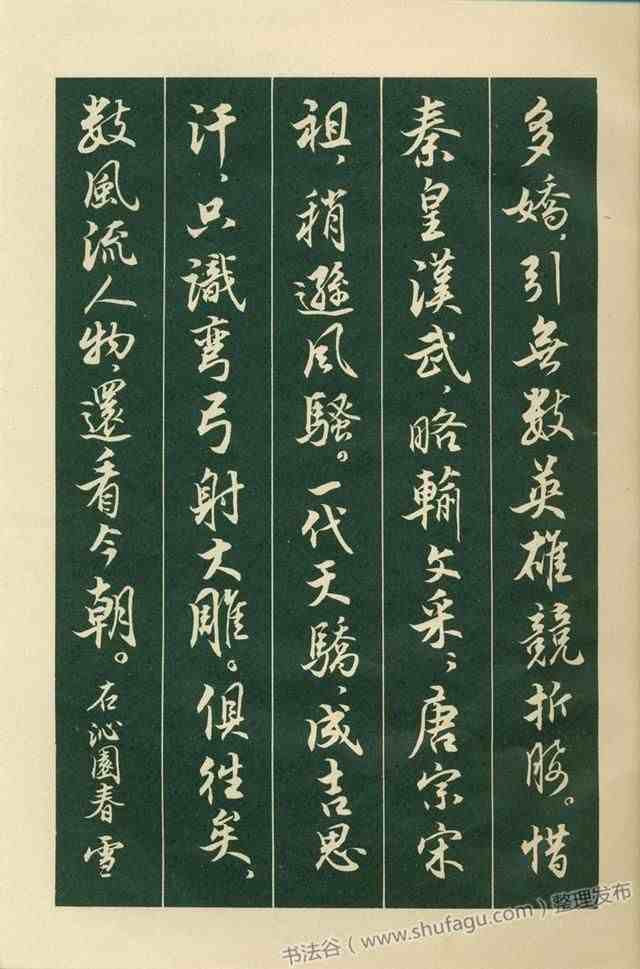 多嬌，引無数英雄競折腰。惜
秦皇漢武，略輸文采；唐宗宋
祖，稍遜風騷。一代天驕，成吉思
汗，只識彎弓射大雕。俱往矣，
数風流人物，還看今朝。右沁園春雪
书法谷（www.shufagu.com）整理发布